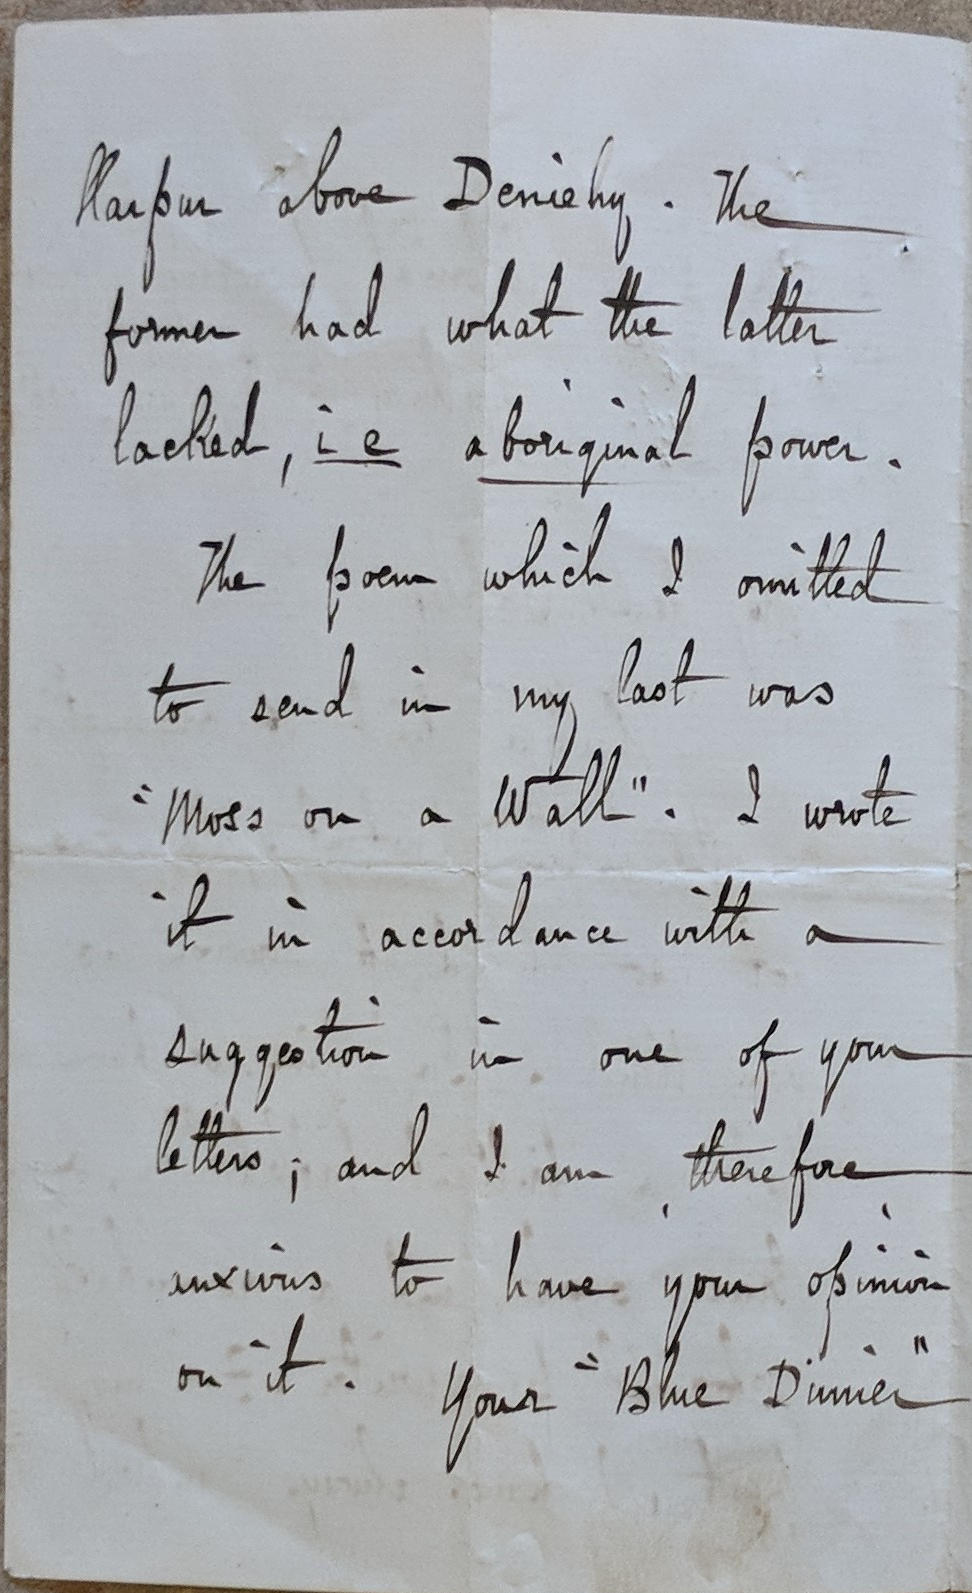 Harpur above Deniehy. The
former had what the latter
lacked, i e aboriginal power.
The poem which I omitted
to send in my last was
"Moss on a Wall". I wrote
it in accordance with a
suggestion in one of your
letters; and I am therefore
anxious to have your opinion
on it. Your "Blue Dinner"